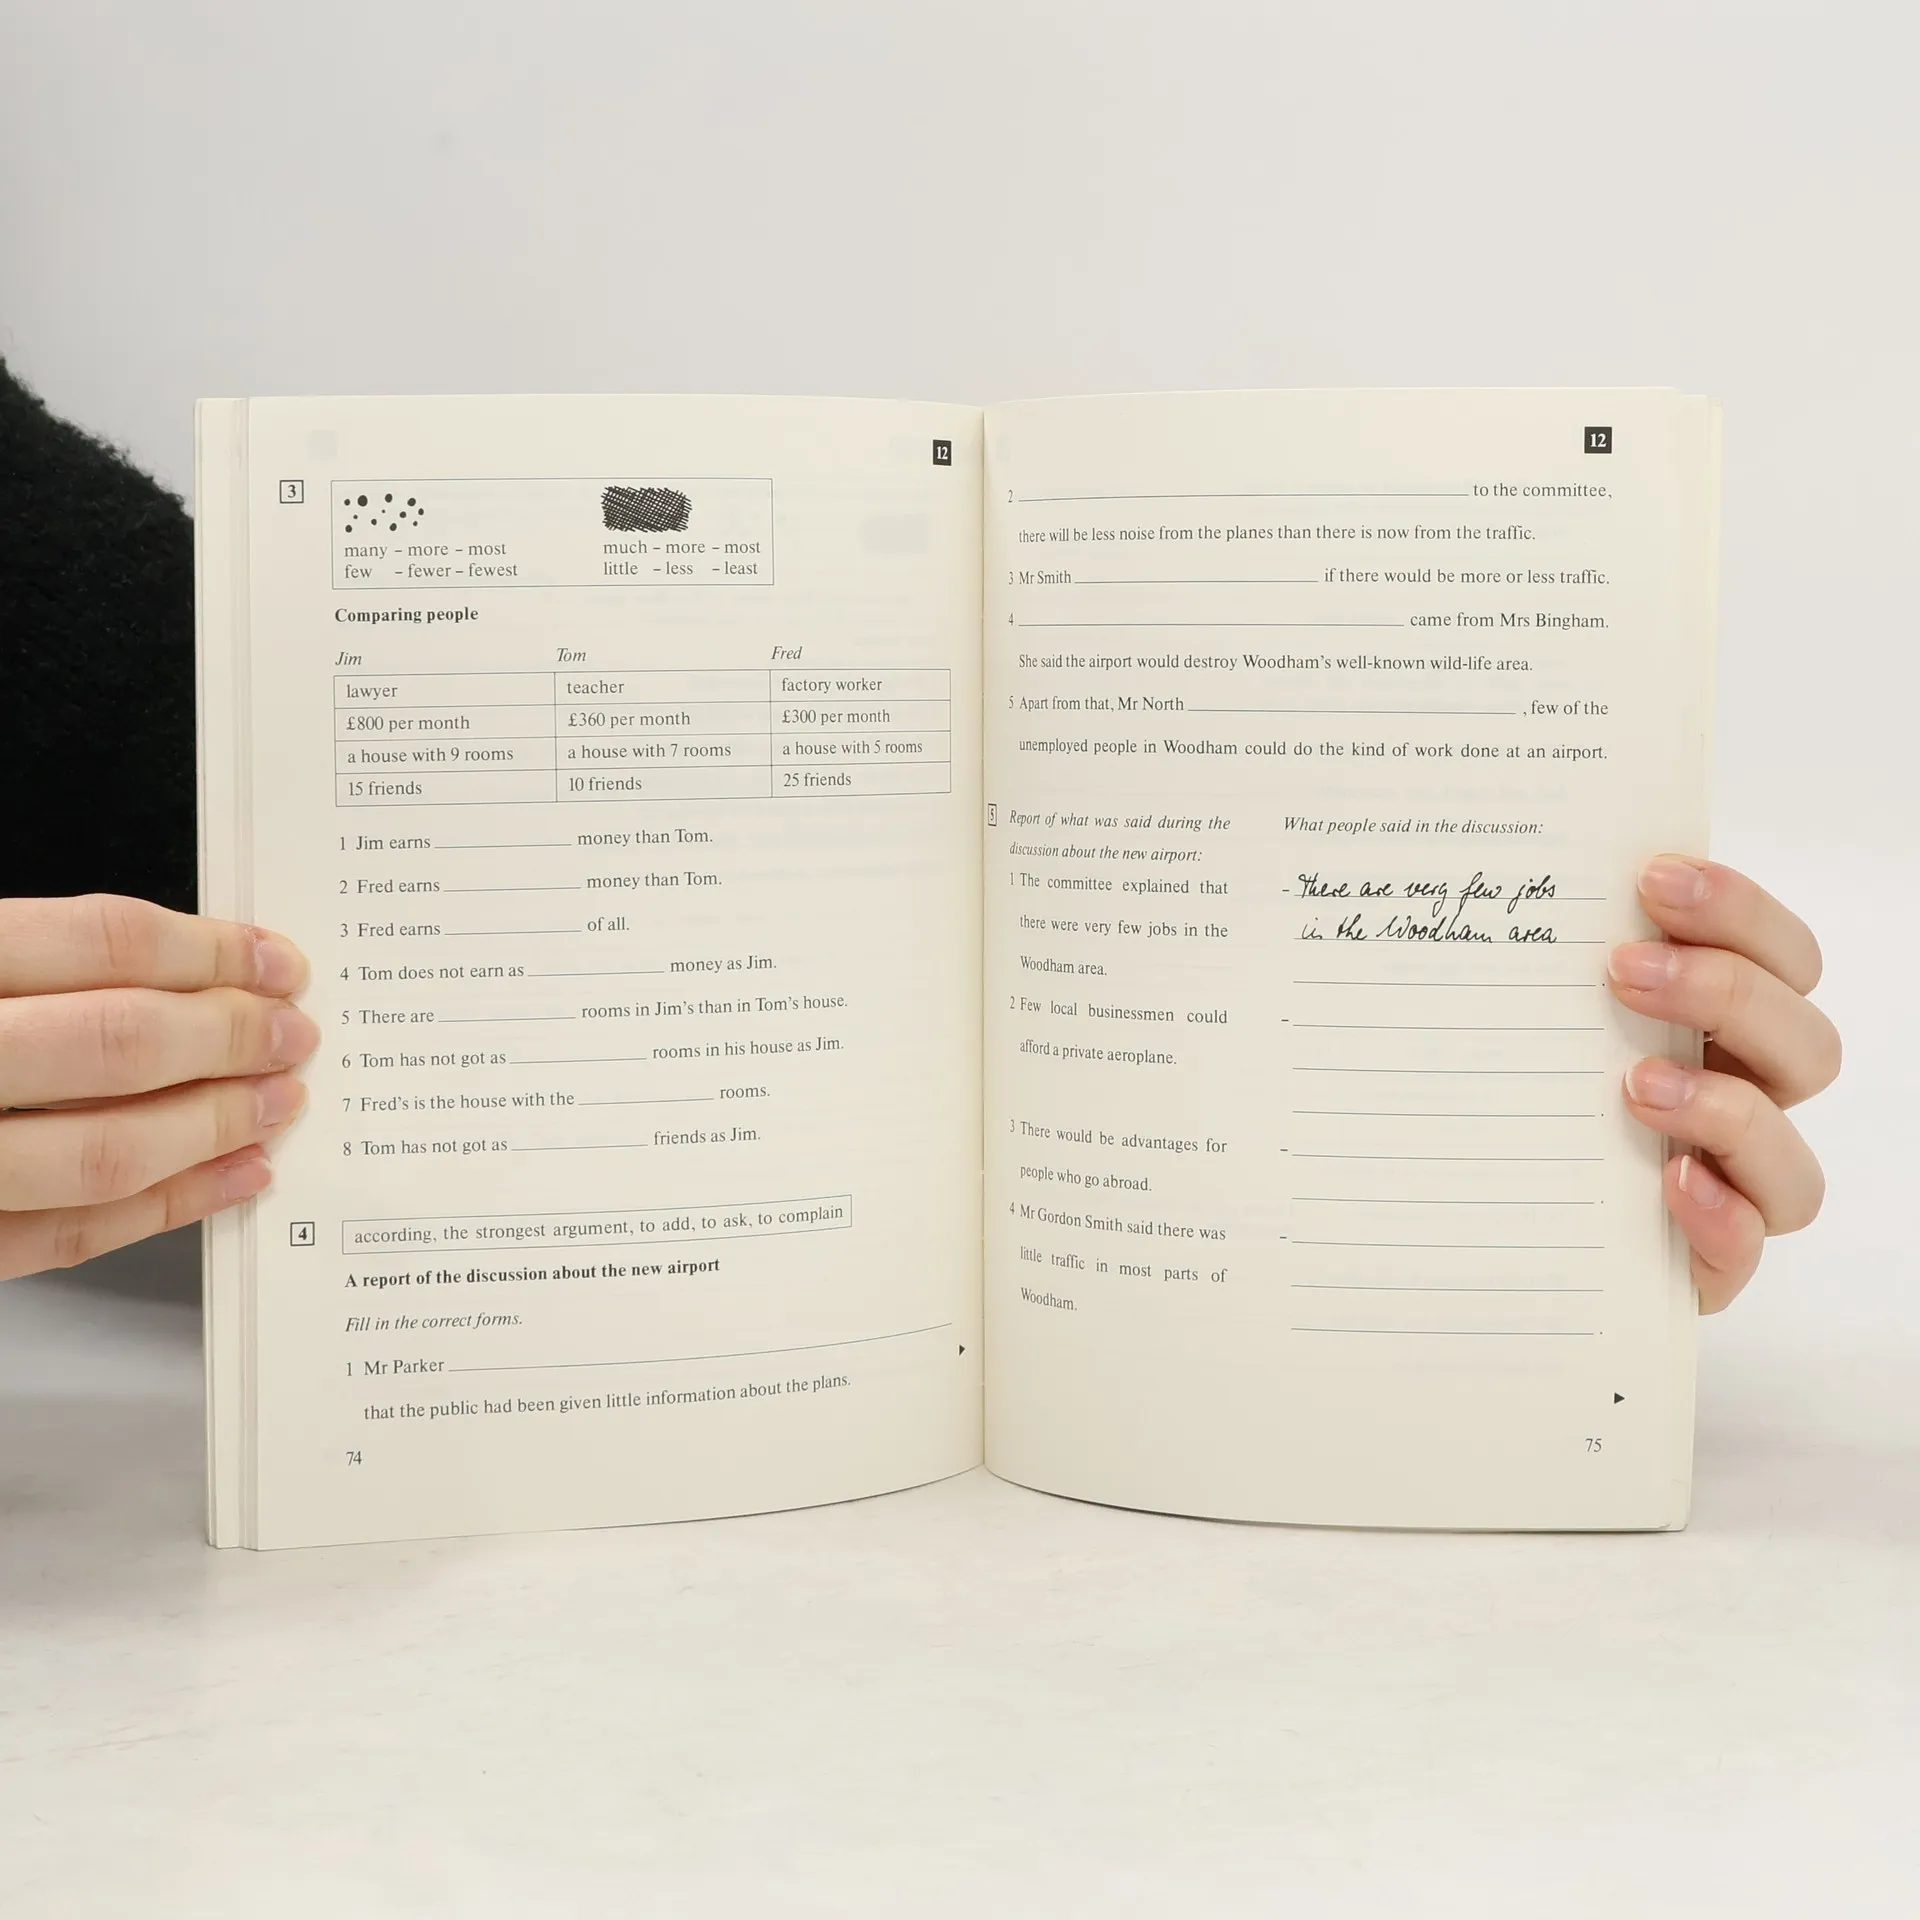 12
3
many – more – most
few – fewer – fewest
much – more – most
little – less – least
Comparing people
Jim Tom Fred
lawyer teacher factory worker
£800 per month £360 per month £300 per month
a house with 9 rooms a house with 7 rooms a house with 5 rooms
15 friends 10 friends 25 friends
1 Jim earns ______ money than Tom.
2 Fred earns ______ money than Tom.
3 Fred earns ______ of all.
4 Tom does not earn as ______ money as Jim.
5 There are ______ rooms in Jim's than in Tom's house.
6 Tom has not got as ______ rooms in his house as Jim.
7 Fred's is the house with the ______ rooms.
8 Tom has not got as ______ friends as Jim.
4
according, the strongest argument, to add, to ask, to complain
A report of the discussion about the new airport
Fill in the correct forms.
1 Mr Parker ______
that the public had been given little information about the plans.
74
12
2 ______ to the committee,
there will be less noise from the planes than there is now from the traffic.
3 Mr Smith ______ if there would be more or less traffic.
4 ______ came from Mrs Bingham.
She said the airport would destroy Woodham's well-known wild-life area.
5 Apart from that, Mr North ______, few of the
unemployed people in Woodham could do the kind of work done at an airport.
5
Report of what was said during the
discussion about the new airport:
1 The committee explained that
there were very few jobs in the
Woodham area.
2 Few local businessmen could
afford a private aeroplane.
3 There would be advantages for
people who go abroad.
4 Mr Gordon Smith said there was
little traffic in most parts of
Woodham.
What people said in the discussion:
– There are very few jobs
in the Woodham area
______.
– ______
______
______.
– ______
______.
– ______
______
______.
75